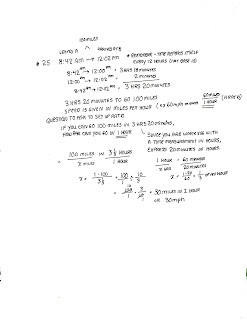 100 miles
LEAVES A ARRIVES AT B
# 25 8:42 AM → 12:02 PM * REMEMBER - TIME REPEATS ITSELF
EVERY 12 HOURS
8:42 AM → 12:00 PM = 3 HRS 18 MINUTES
12:00 PM → 12:02 PM = 2 MINUTES
8:42 AM → 12:02 PM = 3 HRS 20 MINUTES
3 HRS 20 MINUTES TO GO 100 MILES
SPEED IS GIVEN IN MILES PER HOUR ( 60 mph means 60 MILES / 1 HOUR )
QUESTION TO ASK TO SET UP RATIO
IF YOU CAN GO 100 MILES IN 3 HRS 20 MINUTES,
YOU CAN GO IN 1 HOUR
SINCE YOU ARE WORKING WITH
A TIME MEASUREMENT IN HOURS,
EXPRESS 20 MINUTES IN HOURS.
= 100 MILES / X MILES = 3 1/3 HOURS / 1 HOUR
1 HOUR / X HOUR = 60 MINUTES / 20 MINUTES
X = 1·100 / 3 1/3 = 100/1 ÷ 10/3
X = 1·20 / 60 = 1/3 OF AN HOUR
= 100/1 · 3/10 = 30 MILES IN 1 HOUR
OR 30 mph